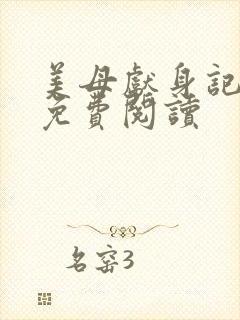 美母獻身記
免費閱讀
名窑3